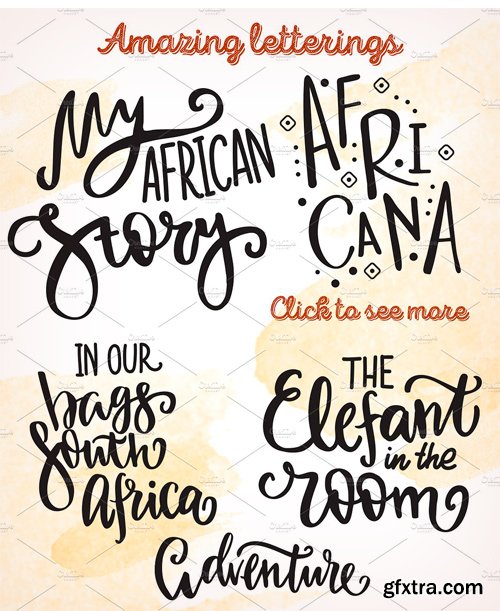 Amazing letterings
My
AFRICAN
Story
AF
RI
CANA
Click to see more
IN OUR
bags
South
Africa
THE
Elefant
in the
room
Adventure
gfxtra.com